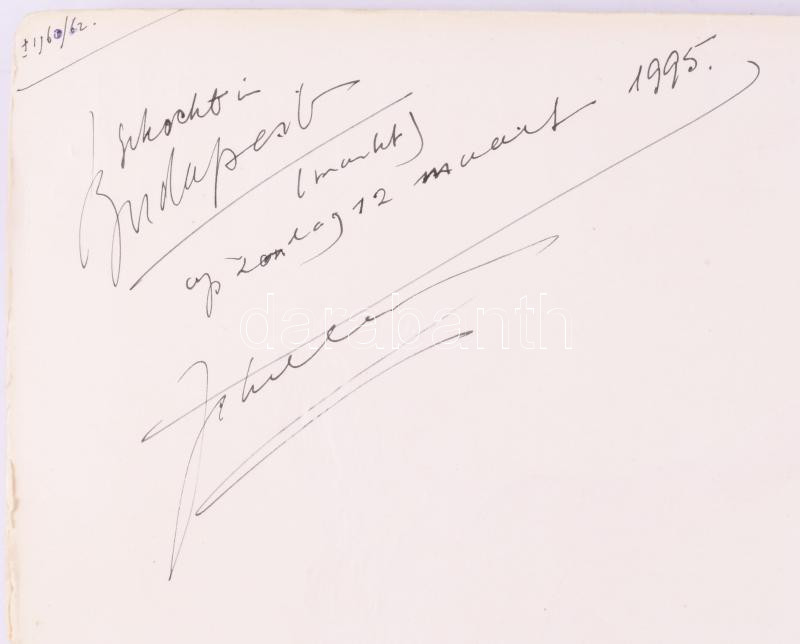 ± 1960/62.
gekocht in
Budapest
(markt)
op zondag 12 maart 1995.
darabanth